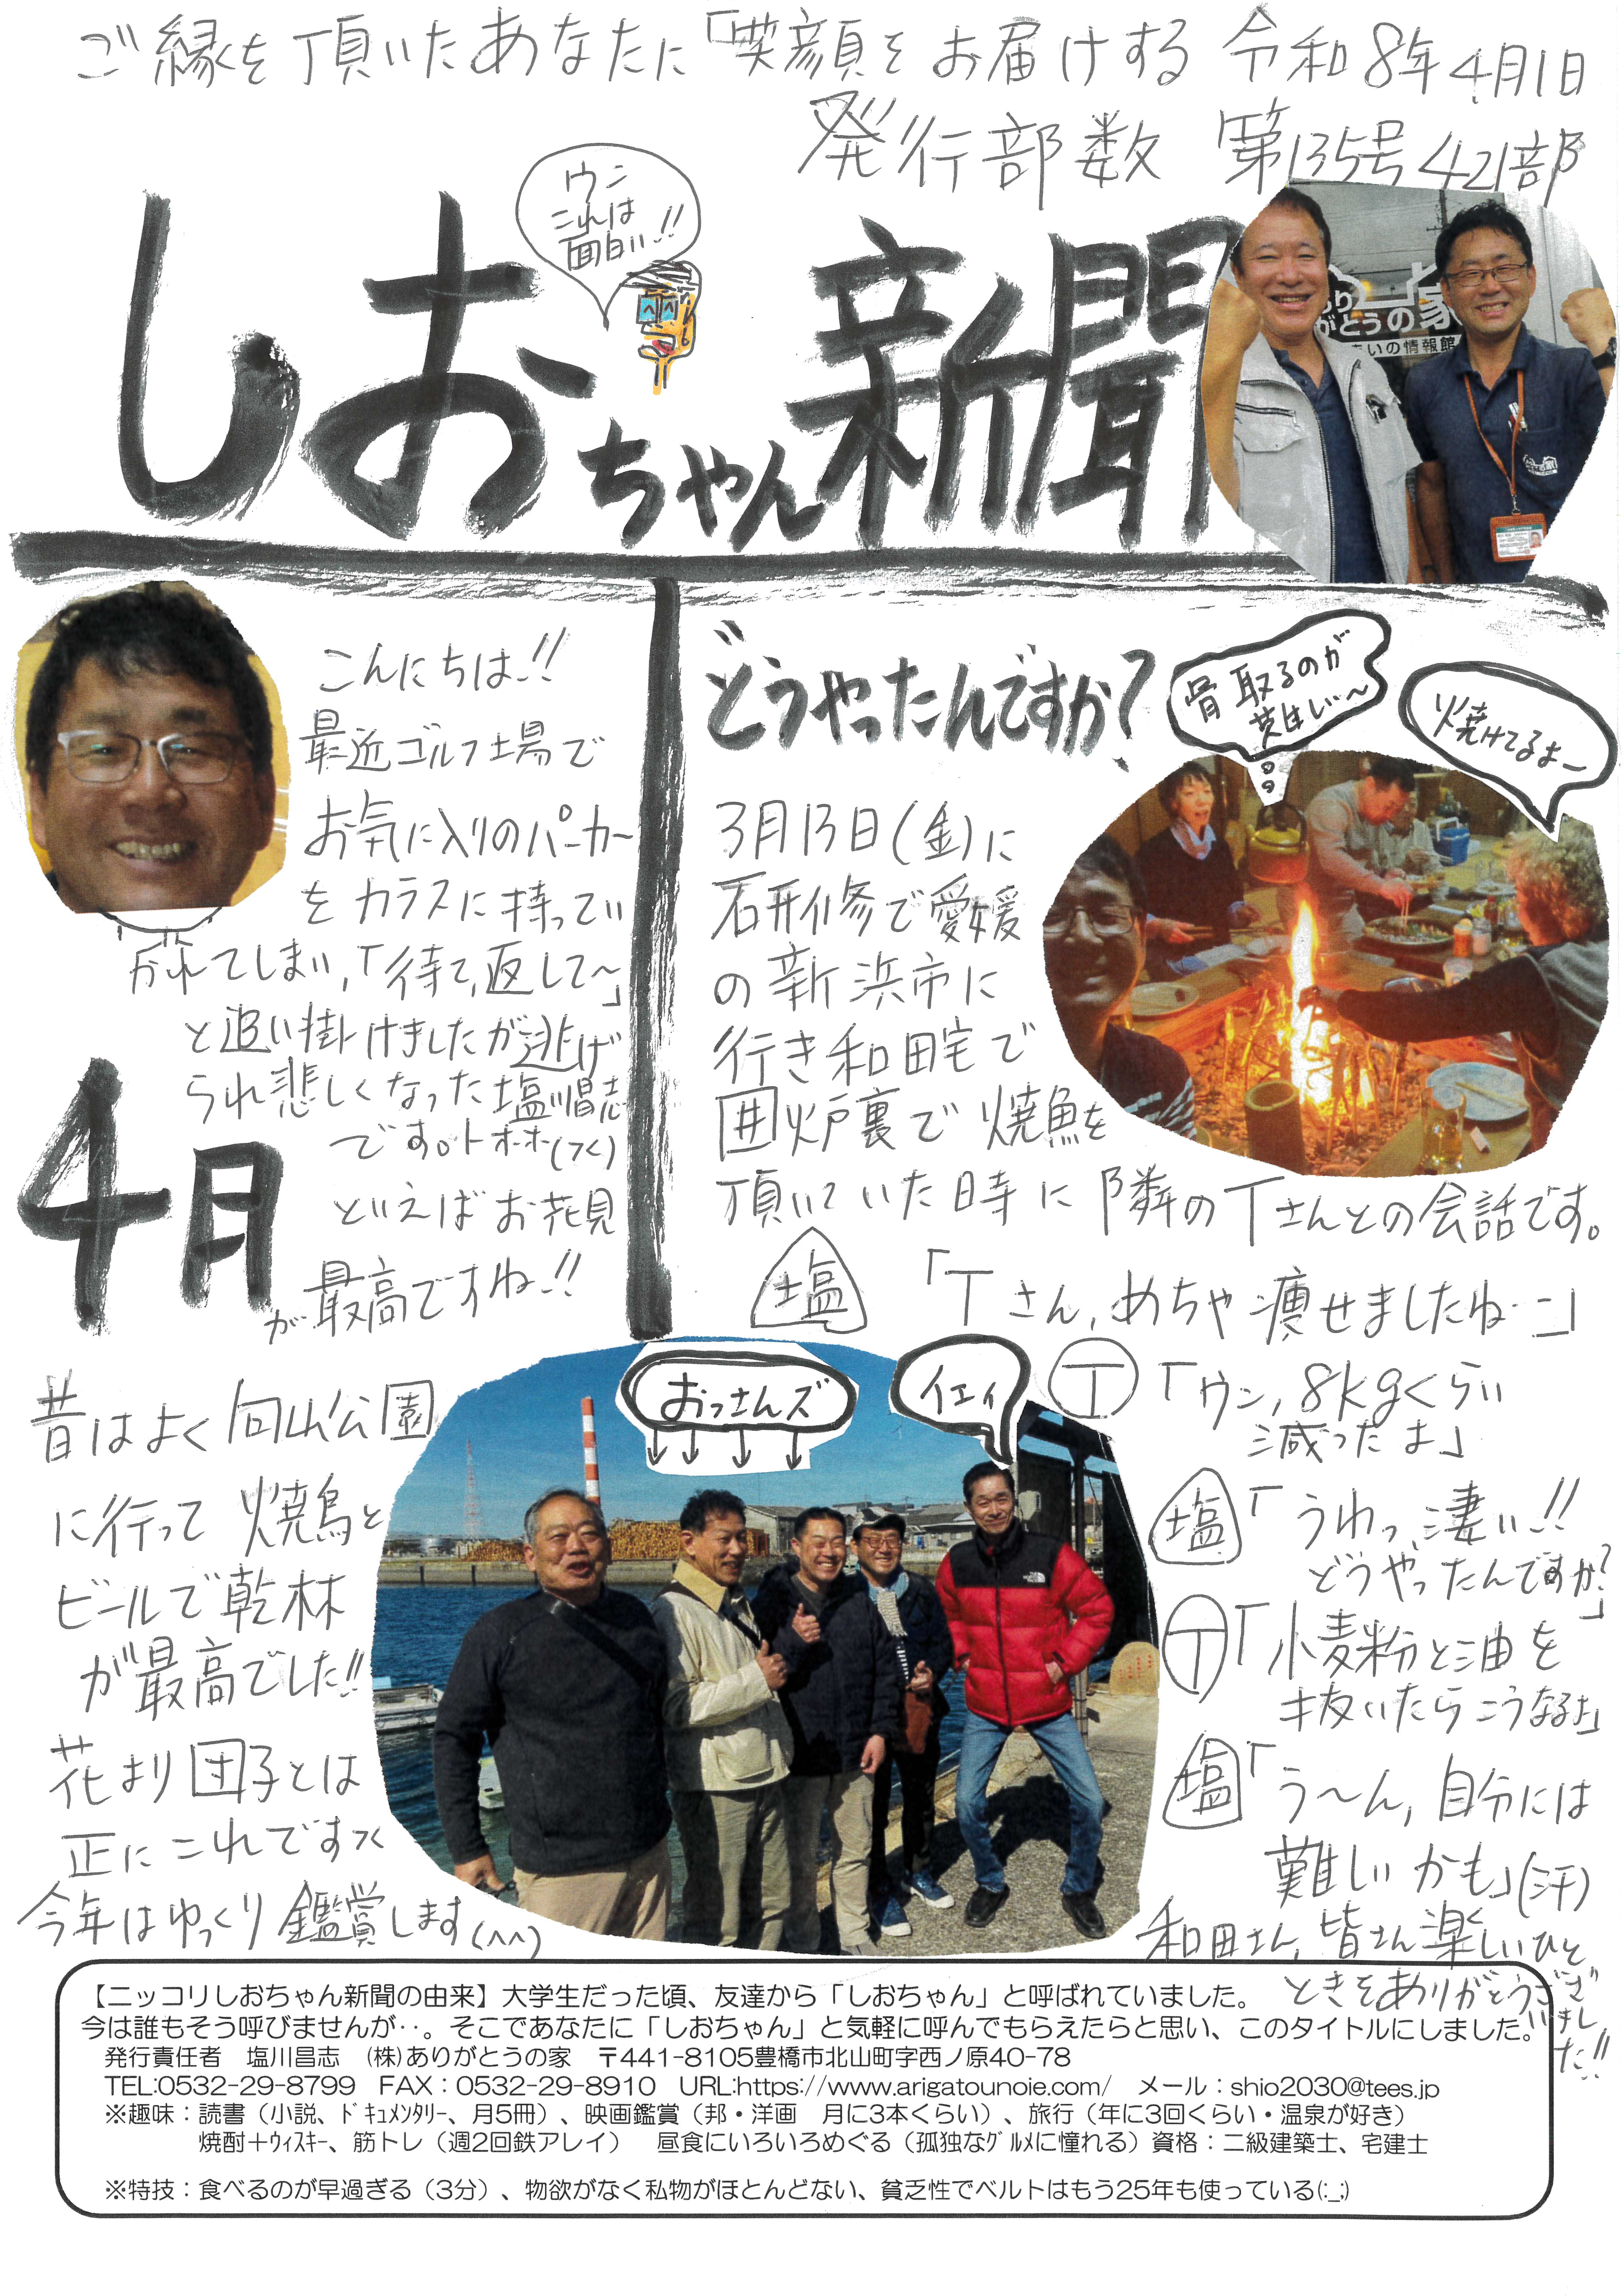 ご縁を頂いたあなたに「笑顔をお届けする 令和8年4月1日
発行部数 第135号421部
ウン
これは
面白い!!
しおちゃん新聞
がとうの家
まいの情報館
こんにちは!!
最近ゴルフ場で
お気に入りのパーカー
をカラスに持ってい
かれてしまい,「待て,返して〜」
と追い掛けましたが逃げ
られ悲しくなった塩川昌志
です。トホホ(つく)
4月
といえばお花見
が最高ですね!!
昔はよく向山公園
に行って焼鳥と
ビールで乾杯
が最高でした!!
花より団子とは
正にこれですヘ
今年はゆっくり鑑賞します(^^)
どうやったんですか?
骨取るのが
難しい〜
焼けてるよー
3月13日(金)に
研修で愛媛
の新浜市に
行き和田宅で
囲炉裏で焼魚を
頂いていた時に隣のTさんとの会話です。
塩 「Tさん,めちゃ痩せましたね…」
T 「ウン,8kgくらい
減ったよ」
塩 「うわっ,凄い!!
どうやったんですか?」
T 「小麦粉と油を
抜いたらこうなるよ」
塩 「う〜ん,自分には
難しいかも」(汗)
和田さん,皆さん楽しいひと
ときをありがとうござ
いまし
た!!
おっさんズ
イエィ
【ニッコリしおちゃん新聞の由来】大学生だった頃、友達から「しおちゃん」と呼ばれていました。
今は誰もそう呼びませんが‥。そこであなたに「しおちゃん」と気軽に呼んでもらえたらと思い、このタイトルにしました。
発行責任者 塩川昌志 (株)ありがとうの家 〒441-8105豊橋市北山町字西ノ原40-78
TEL:0532-29-8799 FAX：0532-29-8910 URL:https://www.arigatounoie.com/ メール：shio2030@tees.jp
※趣味：読書（小説、ﾄﾞｷｭﾒﾝﾀﾘｰ、月5冊）、映画鑑賞（邦・洋画 月に3本くらい）、旅行（年に3回くらい・温泉が好き）
焼酎＋ｳｨｽｷｰ、筋トレ（週2回鉄アレイ） 昼食にいろいろめぐる（孤独なｸﾞﾙﾒに憧れる）資格：二級建築士、宅建士
※特技：食べるのが早過ぎる（3分）、物欲がなく私物がほとんどない、貧乏性でベルトはもう25年も使っている(:_;)